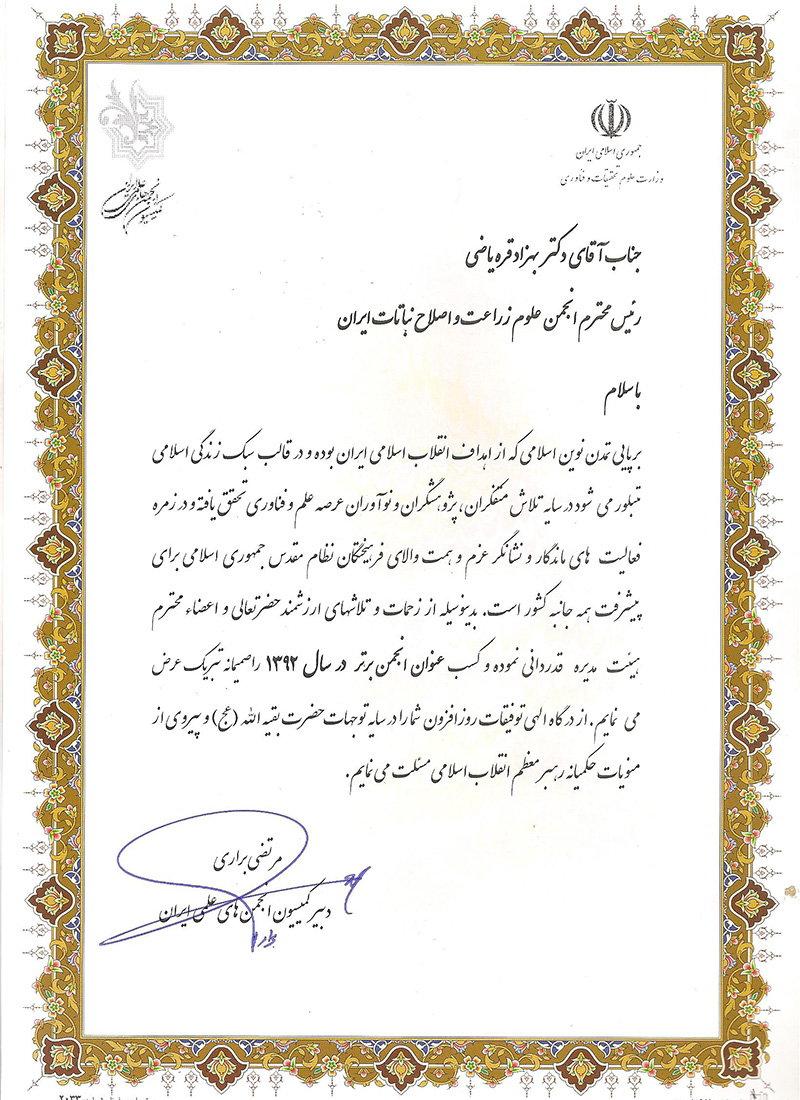 جمهوری اسلامی ایران
وزارت علوم تحقیقات و فناوری
کمیسیون انجمن‌های علمی ایران
جناب آقای دکتر بهزاد قره یاضی
رئیس محترم انجمن علوم زراعت و اصلاح نباتات ایران
باسلام
برپایی تمدن نوین اسلامی که از اهداف انقلاب اسلامی ایران بوده و در قالب سبک زندگی اسلامی
متبلور می شود در سایه تلاش متفکران، پژوهشگران و نوآوران عرصه علم و فناوری تحقق یافته و در زمره
فعالیت های ماندگار و نشانگر عزم و همت والای فرهیختگان نظام مقدس جمهوری اسلامی برای
پیشرفت همه جانبه کشور است. بدینوسیله از زحمات و تلاشهای ارزشمند حضرتعالی و اعضاء محترم
هیئت مدیره قدردانی نموده و کسب عنوان انجمن برتر در سال ۱۳۹۲ را صمیمانه تبریک عرض
می نمایم. از درگاه الهی توفیقات روزافزون شما را در سایه توجهات حضرت بقیه الله (عج) و پیروی از
منویات حکمیانه رهبر معظم انقلاب اسلامی مسئلت می نمایم.
مرتضی براری
دبیر کمیسیون انجمن های علمی ایران
۲۰۳۳